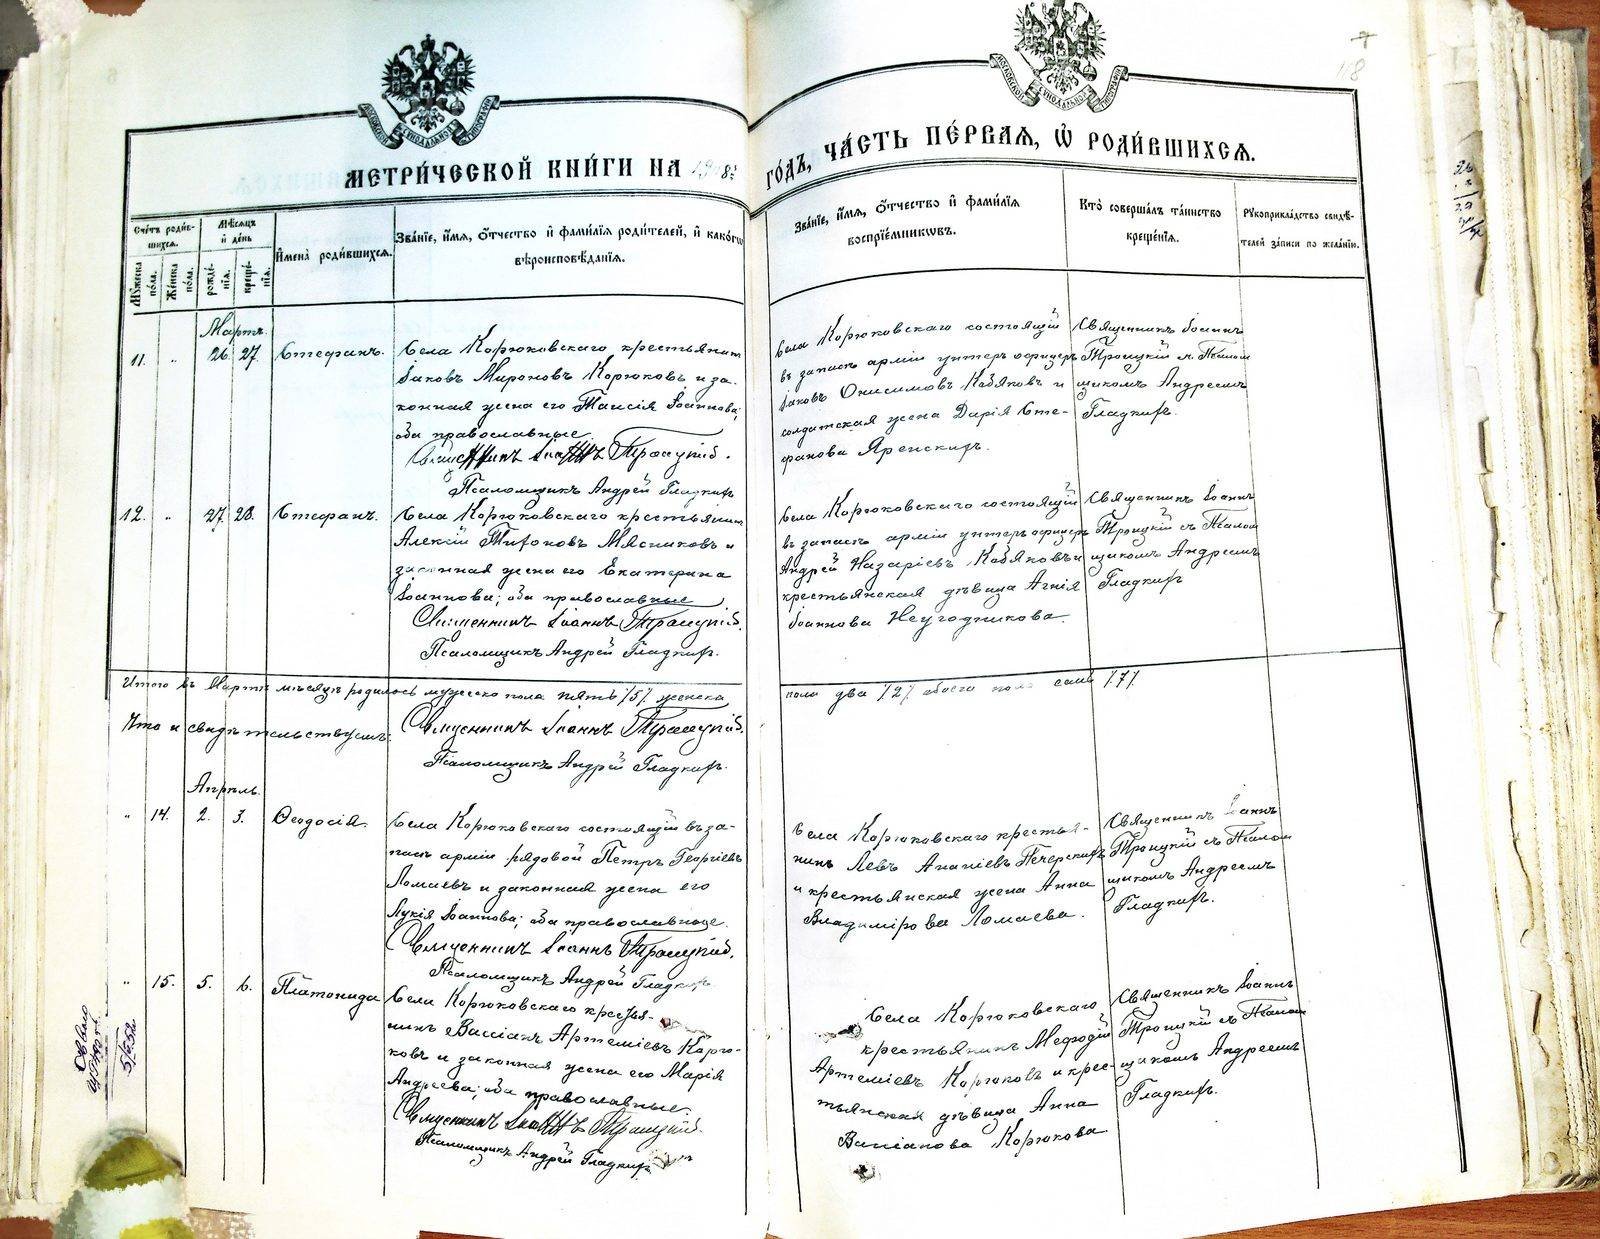 МОСКОВСКОЙ СѴНОДАЛЬНОЙ ТИПОГРАФІИ
МОСКОВСКОЙ СѴНОДАЛЬНОЙ ТИПОГРАФІИ
118
МЕТРИ́ЧЕСКОЙ КНИ́ГИ НА 1908й
ГО́ДЪ, ЧА́СТЬ ПЕ́РВАЯ, Ѡ РОДИ́ВШИХСЯ.
Сче́тъ роди́в-
шихся.
Мѣ́сяцъ
и҆ де́нь
Мꙋ́жеска
по́ла.
Же́нска
по́ла.
рожде́-
нїя.
креще́-
нїя.
И҆мена̀ роди́вшихся.
Зва́нїе, и҆́мя, ѻ҆́тчество и҆ фами́лїя роди́телей, и҆ како́гѡ
вѣроисповѣ́данїя.
Зва́нїе, и҆́мя, ѻ҆́тчество и҆ фами́лїя
воспрїе́мникѡвъ.
Кто̀ соверша́лъ та́инство
креще́нїя.
Рꙋкоприкла́дство свидѣ́-
телей за́писи по жела́нїю.
Мартъ.
11. " 26. 27. Стефанъ.
Села Корюковскаго крестьянинъ
Іаковъ Мироновъ Корюковъ и за-
конная жена его Таисія Іоаннова;
оба православные
Священникъ Іоаннъ Троицкій.
Псаломщикъ Андрей Гладкихъ
Села Корюковскаго состоящій
въ запасѣ арміи унтеръ офицеръ
Іаковъ Онисимовъ Кабяковъ и
солдатская жена Дарія Сте-
фанова Яренскихъ.
Священникъ Іоаннъ
Троицкій съ Псалом
щикомъ Андреемъ
Гладкихъ.
12. " 27. 28. Стефанъ.
Села Корюковскаго крестьянинъ
Алексій Тихоновъ Мясниковъ и
законная жена его Екатерина
Іоаннова; оба православные
Священникъ Іоаннъ Троицкій.
Псаломщикъ Андрей Гладкихъ.
Села Корюковскаго состоящій
въ запасѣ арміи унтеръ офицеръ
Андрей Назаріевъ Кабяковъ и
крестьянская дѣвица Агнія
Іоаннова Неугодникова.
Священникъ Іоаннъ
Троицкій съ Псалом
щикомъ Андреемъ
Гладкихъ
Итого въ Мартѣ мѣсяцѣ родилось мужеска пола пять /5/ женска
пола два /2/ обоего пола семь /7/
Что и свидѣтельствуемъ: Священникъ Іоаннъ Троицкій.
Псаломщикъ Андрей Гладкихъ.
Апрѣль.
" 14. 2. 3. Ѳеодосія.
Села Корюковскаго состоящій въ за-
пасѣ арміи рядовой Петръ Георгіевъ
Ломаевъ и законная жена его
Лукія Іоаннова; оба православные.
Священникъ Іоаннъ Троицкій.
Псаломщикъ Андрей Гладкихъ.
Села Корюковскаго крестья-
нинъ Левъ Ананіевъ Печерскихъ
и крестьянская жена Анна
Владимірова Ломаева.
Священникъ Іоаннъ
Троицкій съ Псалом
щикомъ Андреемъ
Гладкихъ.
" 15. 5. 6. Платонида
Села Корюковскаго крестья-
нинъ Вассіанъ Артеміевъ Корю-
ковъ и законная жена его Марія
Андреева; оба православные.
Священникъ Іоаннъ Троицкій.
Псаломщикъ Андрей Гладкихъ
Села Корюковскаго
крестьянинъ Меѳодій
Артеміевъ Корюковъ и крес-
тьянская дѣвица Анна
Вассіанова Корюкова
Священникъ Іоаннъ
Троицкій съ Псалом
щикомъ Андреемъ
Гладкихъ.